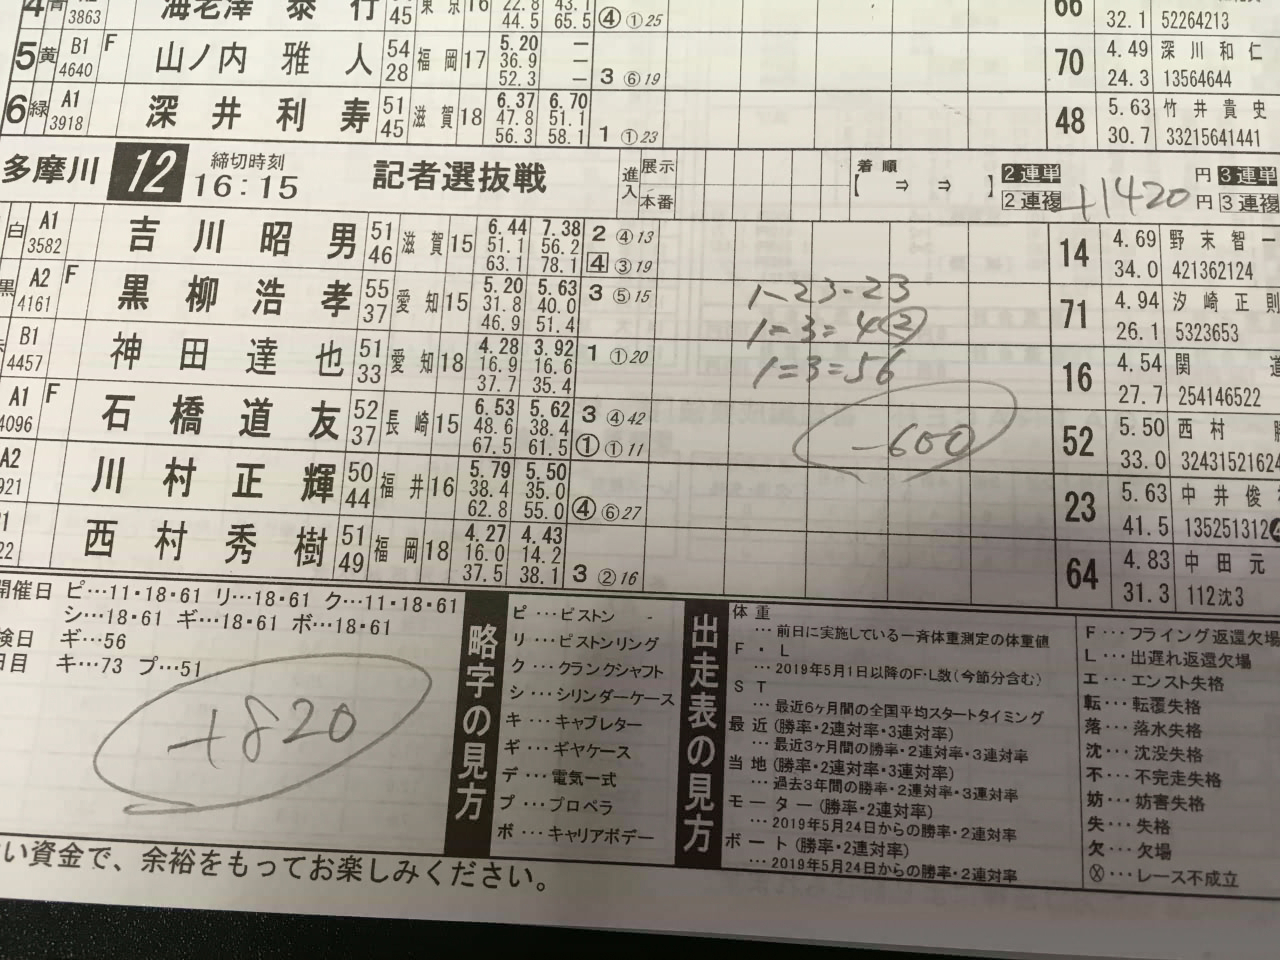 4 青 3863 海老澤 泰行 45 東京 16 22.8 43.1 44.5 65.5 ④ ①25 66 32.1 52264213
5 黄 B1 4640 F 山ノ内 雅人 54 28 福岡 17 5.20 36.9 52.3 ー ー ー 3 ⑥19 70 4.49 24.3 深川和仁 13564644
6 緑 A1 3918 深井利寿 51 45 滋賀 18 6.37 47.8 56.3 6.70 51.1 58.1 1 ①23 48 5.63 30.7 竹井貴史 33215641441
多摩川 12 締切時刻 16:15 記者選抜戦 進入 展示 本番 着順 【 ⇒ ⇒ 】 2連単 円 3連単
2連複 +1420 円 3連複
白 A1 3582 吉川昭男 51 46 滋賀 15 6.44 51.1 63.1 7.38 56.2 78.1 2 ④13 4 ③19 14 4.69 34.0 野末智一 421362124
黒 A2 4161 F 黒柳浩孝 55 37 愛知 15 5.20 31.8 46.9 5.63 40.0 51.4 3 ⑤15 71 4.94 26.1 汐崎正則 5323653
1-23-23
1=3=4②
B1 4457 神田達也 51 33 愛知 18 4.28 16.9 37.7 3.92 16.6 35.4 1 ①20 16 4.54 27.7 関道 254146522
1=3=56
A1 4096 F 石橋道友 52 37 長崎 15 6.53 48.6 67.5 5.62 38.4 61.5 3 ④42 ① ①11 52 5.50 33.0 西村 32431521624
-600
A2 921 川村正輝 50 44 福井 16 5.79 38.4 62.8 5.50 35.0 55.0 ④ ⑥27 23 5.63 41.5 中井俊 135251312
22 西村秀樹 51 49 福岡 18 4.27 16.0 37.5 4.43 14.2 38.1 3 ②16 64 4.83 31.3 中田元 112沈3
開催日 ピ…11・18・61 リ…18・61 ク…11・18・61
シ…18・61 ギ…18・61 ボ…18・61
検日 ギ…56
日目 キ…73 プ…51
+820
略字の見方
ピ…ピストン
リ…ピストンリング
ク…クランクシャフト
シ…シリンダーケース
キ…キャブレター
ギ…ギヤケース
デ…電気一式
プ…プロペラ
ボ…キャリアボデー
出走表の見方
体重
…前日に実施している一斉体重測定の体重値
F・L
…2019年5月1日以降のF・L数(今節分含む)
ST
…最近6ヶ月間の全国平均スタートタイミング
最近(勝率・2連対率・3連対率)
…最近3ヶ月間の勝率・2連対率・3連対率
当地(勝率・2連対率・3連対率)
…過去3年間の勝率・2連対率・3連対率
モーター(勝率・2連対率)
…2019年5月24日からの勝率・2連対率
ボート(勝率・2連対率)
…2019年5月24日からの勝率・2連対率
F…フライング返還欠場
L…出遅れ返還欠場
エ…エンスト失格
転…転覆失格
落…落水失格
沈…沈没失格
不…不完走失格
妨…妨害失格
失…失格
欠…欠場
ⓧ…レース不成立
い資金で、余裕をもってお楽しみください。